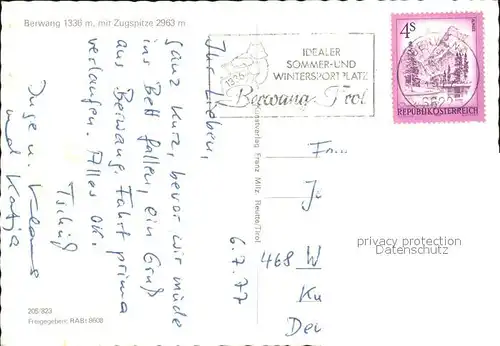 Berwang 1336 m, mit Zugspitze 2963 m
Ihr Lieben,
ganz kurz, bevor wir müde
ins Bett fallen, ein Gruß
aus Berwang. Fahrt prima
verlaufen. Alles OK.
Tschüß
Inge u. Klaus
und Katja
6.7.77
IDEALER
SOMMER-UND
WINTERSPORTPLATZ
Berwang, Tirol
4S
REPUBLIK ÖSTERREICH
Franz Milz, Reutte/Tirol
468 W
Ku
privacy protection
Datenschutz
205/323
Freigegeben: RABt 9608